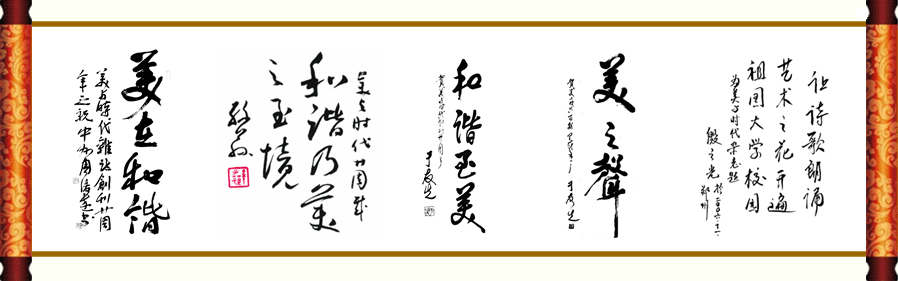 让诗歌朗诵
艺术之花开遍
祖国大学校园
为美与时代杂志题
殷之光
郑州
美之聲
于友先
和谐至美
于友先
美与时代廿周
和谐乃美
之至境
美在和谐
美与時代雜誌創刊廿周
年之祝 中州周俊杰书